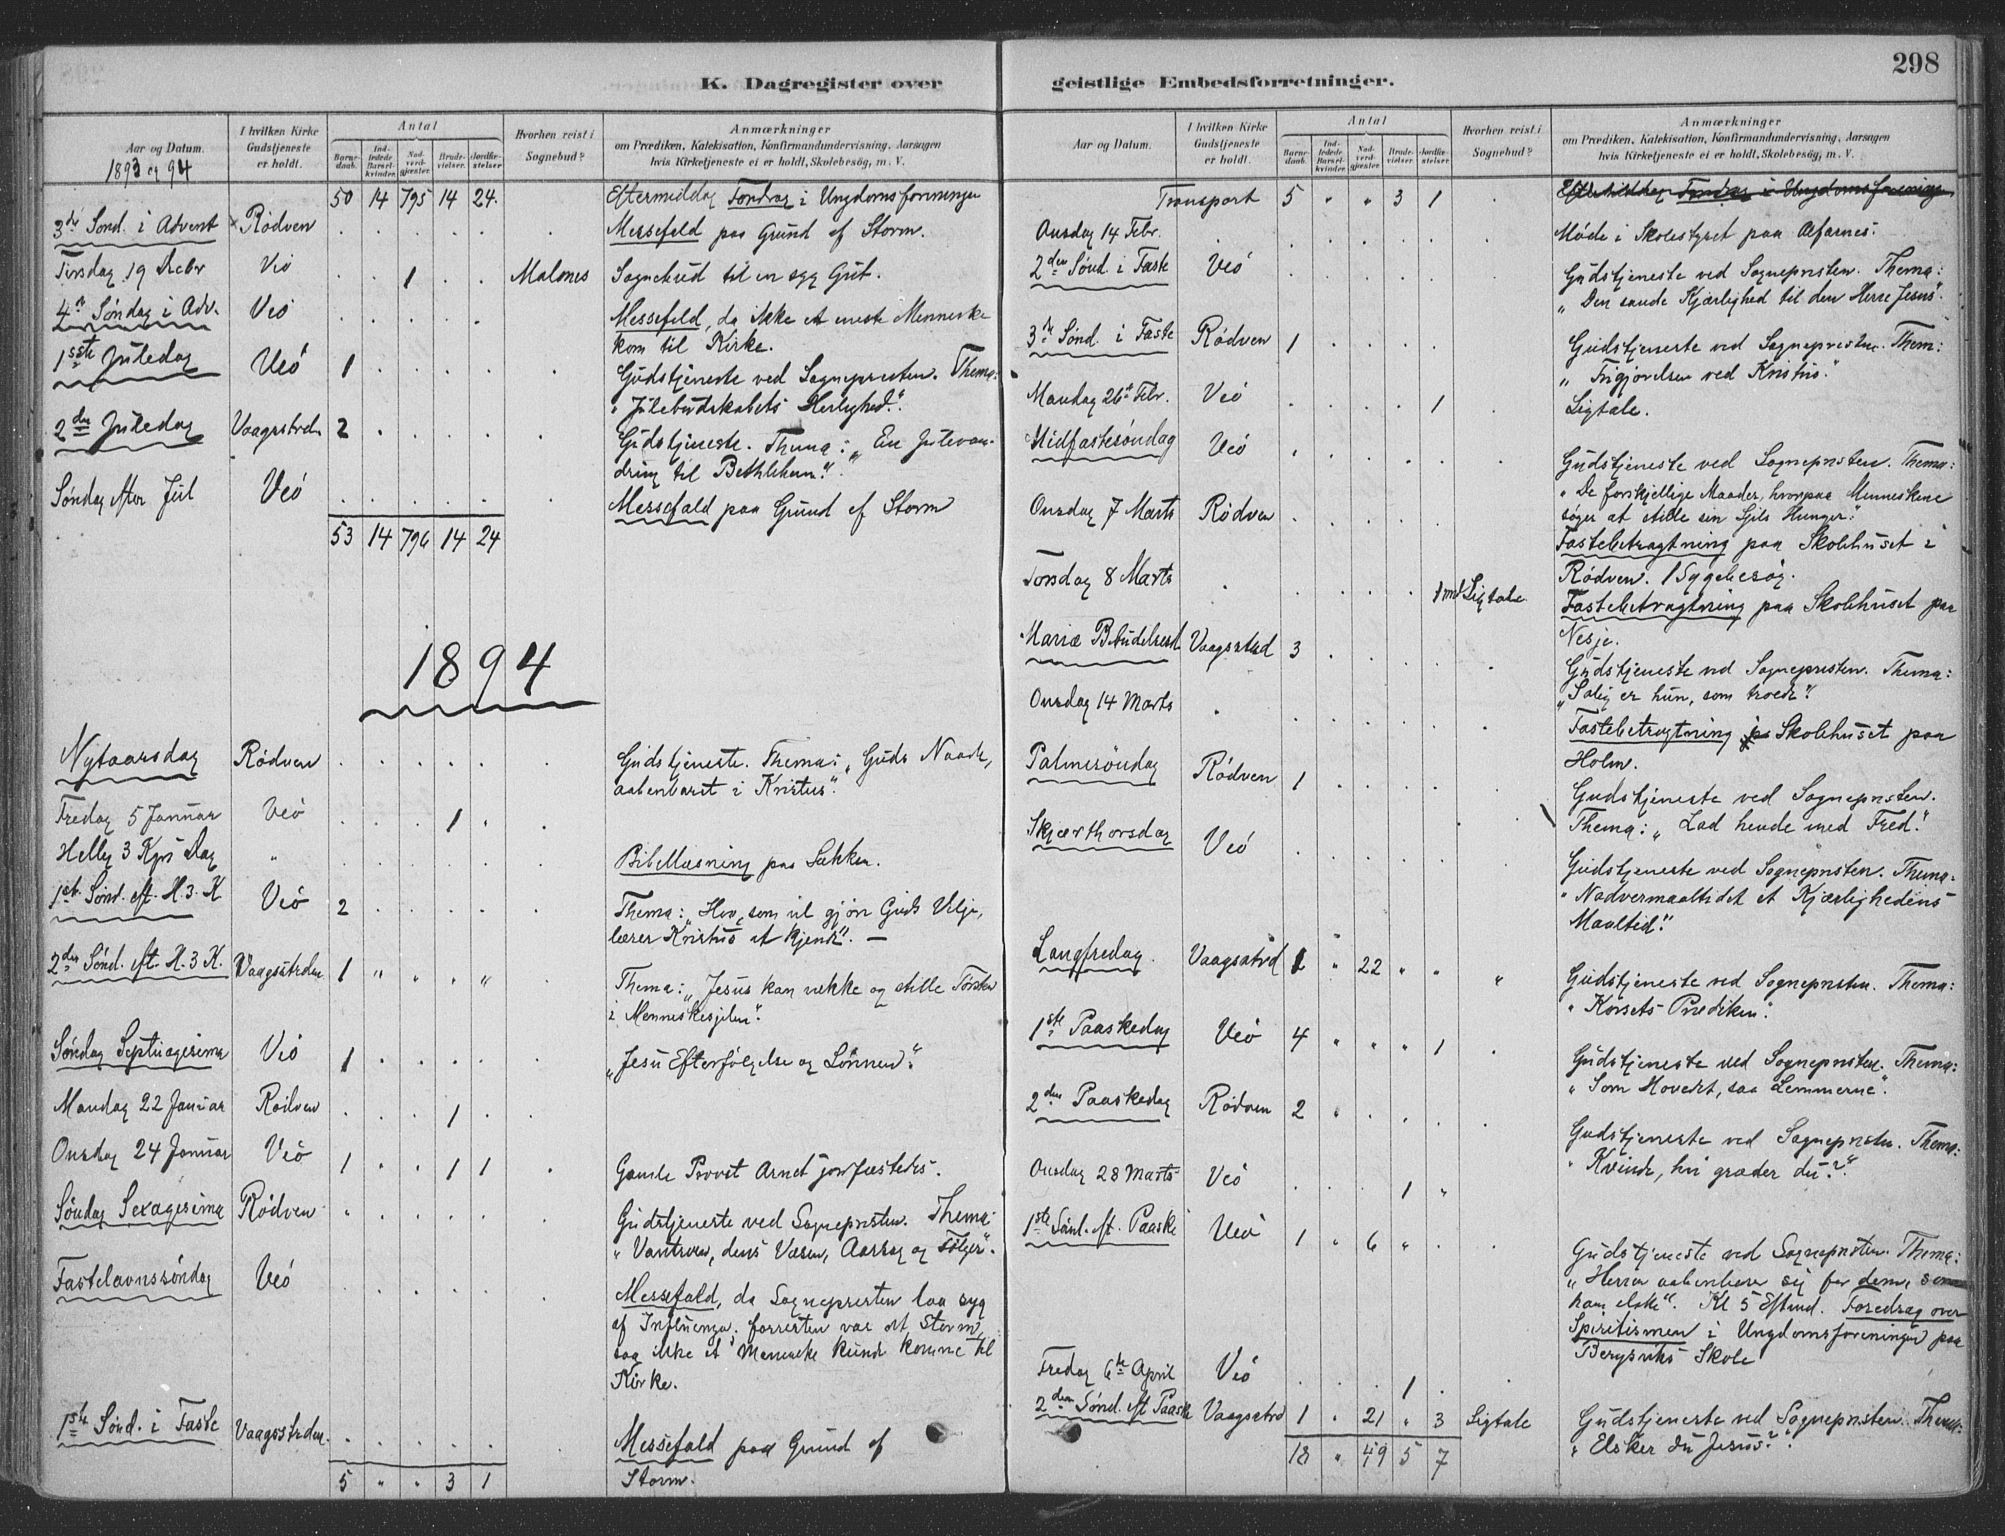 298
K. Dagregister over
geistlige Embedsforretninger.
Aar og Datum.
1893 og 94
I hvilken Kirke Gudstjeneste er holdt.
Antal
Barne-daab. Ind-ledede Barsel-kvinder. Nad-verd-gjæster. Brude-vielser. Jordfæ-stelser
Hvorhen reist i Sognebud?
Anmærkninger
om Prædiken, Katekisation, Konfirmandundervisning, Aarsagen
hvis Kirketjeneste ei er holdt, Skolebesøg, m. V.
50 14 795 14 24. Eftermiddag Foredrag i Ungdomsforeningen
3die Sønd. i Advent Rødven . . . . . . Messefald paa Grund af Storm.
Tirsdag 19 Decbr Veø . . 1 . . Malones Sognebud til en syg Gut.
4de Søndag i Adv. Veø . . . . . . Messefald, da ikke et eneste Menneske
kom til Kirke.
1ste Juledag Veö 1 . . . . . Gudstjeneste ved Sognepresten. Thema:
"Julebudskabets Herlighed".
2den Juledag Vaagstrdn 2 . . . . . Gudstjeneste. Thema: "En Julevan-
dring til Bethlehem".
Søndag efter Jul Veö . . . . . . Messefald paa Grund af Storm
53 14 796 14 24
1894
Nytaarsdag Rødven . . . . . . Gudstjeneste. Thema: "Guds Naade,
aabenbaret i Kristus".
Fredag 5 Januar Veö . . . 1 . .
Hellig 3 Kgrs Dag " . . . . . . Bibellæsning paa Sekken.
1ste Sønd. eft. H. 3. K Veö 2 . . . . . Thema: "Hvo, som vil gjøre Guds Vilje,
lærer Kristus at kjende". —
2den Sønd. eft. H. 3 K. Vaagsstrden 1 " " " " Thema: "Jesus kan vække og stille Tørsten
i Menneskesjelen".
Søndag Septuagesima Veö 1 . . . . . "Jesu Efterfølgelse og Lønnen".
Mandag 22 Januar Rødven . . . 1 . .
Onsdag 24 Januar Veö 1 . . 1 1 . Gamle Provst Arnet jordfæstedes.
Søndag Sexagesima Rödven . . . . . . Gudstjeneste ved Sognepresten. Thema:
"Vantroen, dens Væsen, Aarsag og Følger".
Fastelavnssöndag Veö . . . . . . Messefald, da Sognepresten laa syg
af Influenza, forresten var det Storm,
saa ikke et Menneske kunde komme til
Kirke.
1ste Sønd. i Faste Vaagsstrden . . . . . . Messefald paa Grund af
Storm.
5 " . 3 1
Aar og Datum.
I hvilken Kirke Gudstjeneste er holdt.
Antal
Barne-daab. Ind-ledede Barsel-kvinder. Nad-verd-gjæster. Brude-vielser. Jordfæ-stelser
Hvorhen reist i Sognebud?
Anmærkninger
om Prædiken, Katekisation, Konfirmandundervisning, Aarsagen
hvis Kirketjeneste ei er holdt, Skolebesög, m. V.
Transport 5 " " 3 1 Eftermiddag Foredrag i Ungdomsforeningen
Onsdag 14 Febr. . . . . . . . Møde i Skolestyret paa Alfarnes.
2den Sønd i Faste Veö . . . . . . Gudstjeneste ved Sognepresten. Thema:
"Den sande Kjærlighed til den Herre Jesus".
3die Sønd. i Faste Rødven 1 . . . . . Gudstjeneste ved Sognepresten. Thema:
"Frigjørelsen ved Kristus."
Mandag 26de Febr. Veö . . . . 1 . Ligtale.
Midfastesøndag Veö . . . . . . Gudstjeneste ved Sognepresten. Thema:
"De forskjellige Maader, hvorpaa Menneskene
søger at stille sin Sjels Hunger".
Onsdag 7 Marts Rødven . . . . . . Fastebetragtning paa Skolehuset i
Rødven. 1 Sygebesøg.
Torsdag 8 Marts . . . . . 1 med Ligtale Fastebetragtning paa Skolehuset paa
Nesje.
Mariæ Bebudelsesd Vaagsstrd 3 . . . . . Gudstjeneste ved Sognepresten. Thema:
"Salig er hun, som troede".
Onsdag 14 Marts . . . . . . . Fastebetragtning Skolehuset paa
Holm.
Palmesöndag Rødven 1 . . . . . Gudstjeneste ved Sognepresten.
Thema: "Lad hende med Fred."
Skjærthorsdag Veö . . . . . . Gudstjeneste ved Sognepresten. Thema:
"Nadvermaaltidet et Kjærlighedens
Maaltid".
Langfredag. Vaagsstrd 1 " 22 " " " Gudstjeneste ved Sognepresten. Thema:
"Korsets Prædiken".
1ste Paaskedag Veö 4 " " " 1 . Gudstjeneste ved Sognepresten. Thema:
"Som Hovedet, saa Lemmerne".
2den Paaskedag Rödven 2 " . . . . Gudstjeneste ved Sognepresten. Thema:
"Kvinde, hvi græder du?"
Onsdag 28 Marts Veö . . . 1 "
1ste Sønd. eft. Paaske Veö 1 " 6 " . . Gudstjeneste ved Sognepresten. Thema:
"Herren aabenbarer sig for dem, som
ham elske". Kl 5 Eftmd. Foredrag over
Spiritismen i Ungdomsforeningen paa
Bergsviks Skole
Fredag 6te April Veö . . . 1 .
2den Sønd. eft Paaske Vaagsstrd 1 " 21 " 3 Ligtale Gudstjeneste ved Sognepresten. Thema:
"Elsker du Jesus?".
18 " 49 5 7